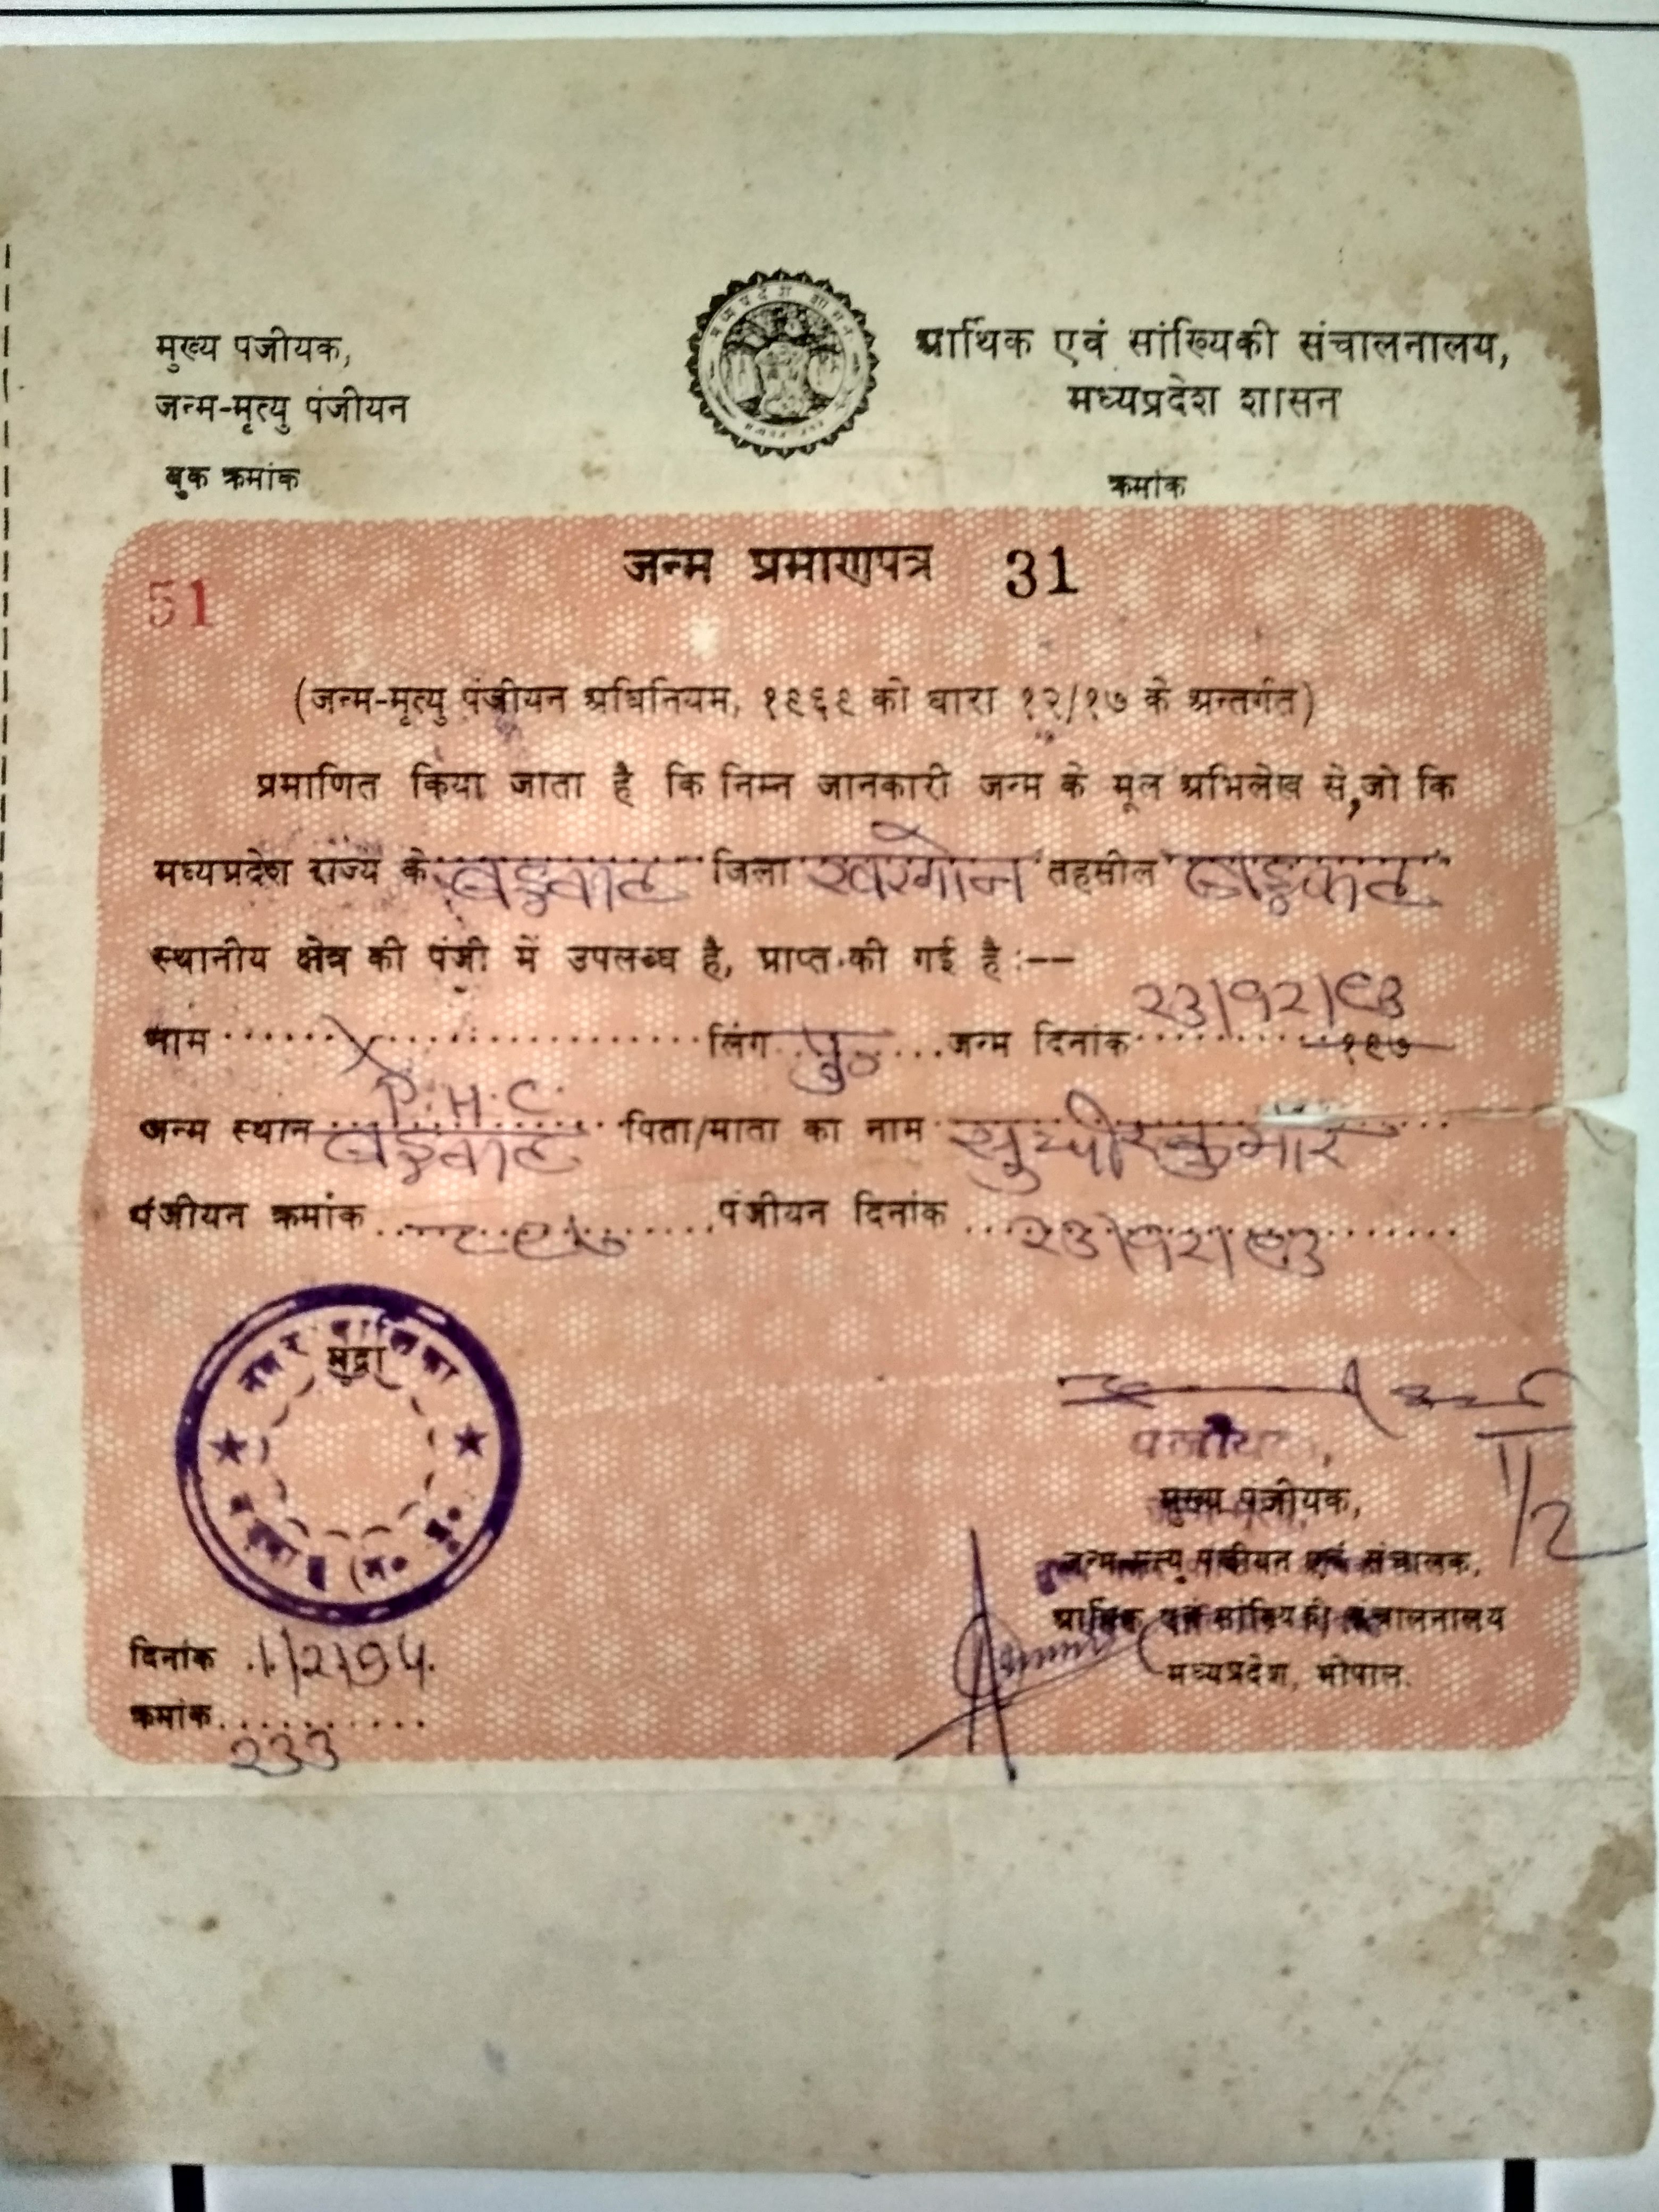 मुख्य पजीयक,
जन्म-मृत्यु पंजीयन
आर्थिक एवं सांख्यिकी संचालनालय,
मध्यप्रदेश शासन
बुक क्रमांक
क्रमांक
जन्म प्रमाणपत्र 31
51
(जन्म-मृत्यु पंजीयन अधिनियम, १९६९ की धारा १२/१७ के अन्तर्गत)
प्रमाणित किया जाता है कि निम्न जानकारी जन्म के मूल अभिलेख से, जो कि
मध्यप्रदेश राज्य के बड़वाह जिला खरगोन तहसील बड़वाह
स्थानीय क्षेत्र की पंजी में उपलब्ध है, प्राप्त की गई है :--
नाम X लिंग पु० जन्म दिनांक २३/१२/९३ १९७
जन्म स्थान P.H.C. बड़वाह पिता/माता का नाम सुधीरकुमार
पंजीयन क्रमांक पंजीयन दिनांक २३/१२/९३
नगर पालिका
मुद्रा
(म० प्र०
1/2
मुख्य पंजीयक,
जन्म-मृत्यु पंजीयन एवं संचालक,
आर्थिक एवं सांख्यिकी संचालनालय
मध्यप्रदेश, भोपाल.
दिनांक 1/2/94.
क्रमांक
२३३